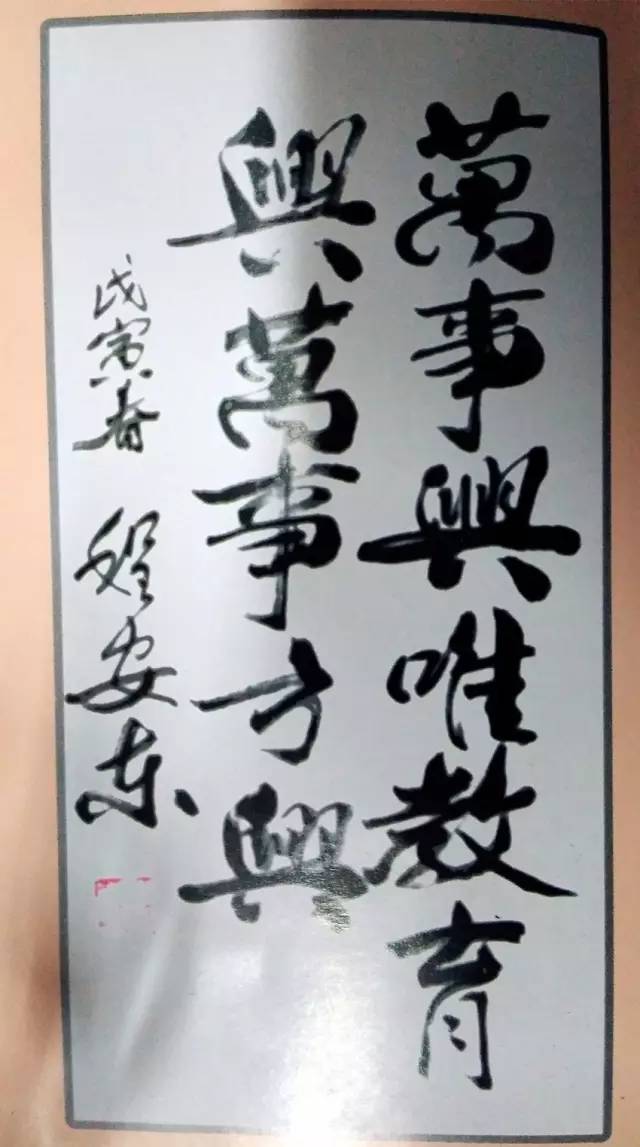 萬事興唯教育
興萬事方興
戊寅春 程安东